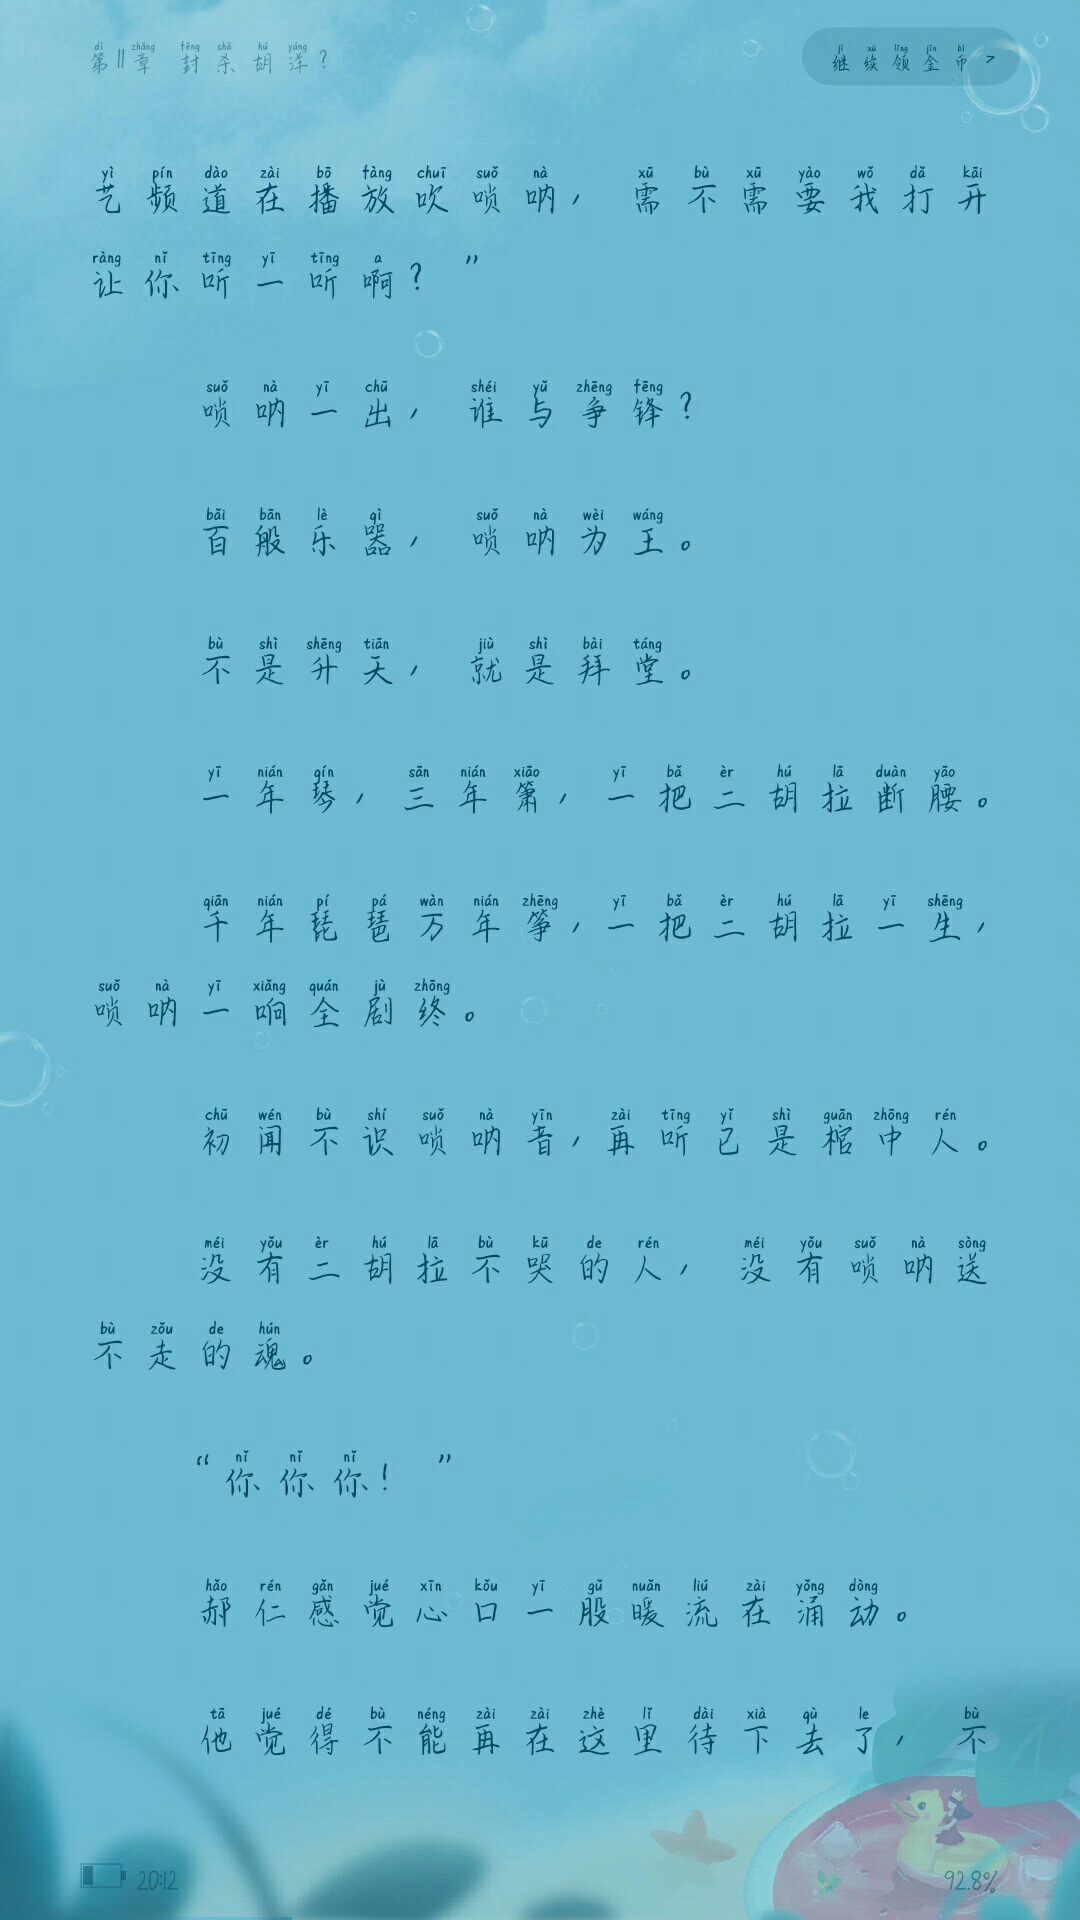 dì zhāng fēng shā hú yáng
第11章 封杀胡洋？
jì xù lǐng jīn bì
继续领金币 >
yì pín dào zài bō fàng chuī suǒ nà xū bù xū yào wǒ dǎ kāi
艺频道在播放吹唢呐，需不需要我打开
ràng nǐ tīng yī tīng a
让你听一听啊？”
suǒ nà yī chū shéi yǔ zhēng fēng
唢呐一出，谁与争锋？
bǎi bān lè qì suǒ nà wèi wáng
百般乐器，唢呐为王。
bù shì shēng tiān jiù shì bài táng
不是升天，就是拜堂。
yī nián qín sān nián xiāo yī bǎ èr hú lā duàn yāo
一年琴，三年箫，一把二胡拉断腰。
qiān nián pí pá wàn nián zhēng yī bǎ èr hú lā yī shēng
千年琵琶万年筝，一把二胡拉一生，
suǒ nà yī xiǎng quán jù zhōng
唢呐一响全剧终。
chū wén bù shí suǒ nà yīn zài tīng yǐ shì guān zhōng rén
初闻不识唢呐音，再听已是棺中人。
méi yǒu èr hú lā bù kū de rén méi yǒu suǒ nà sòng
没有二胡拉不哭的人，没有唢呐送
bù zǒu de hún
不走的魂。
nǐ nǐ nǐ
“你你你！”
hǎo rén gǎn jué xīn kǒu yī gǔ nuǎn liú zài yǒng dòng
郝仁感觉心口一股暖流在涌动。
tā jué dé bù néng zài zài zhè lǐ dài xià qù le bù
他觉得不能再在这里待下去了，不
20:12
92.8%